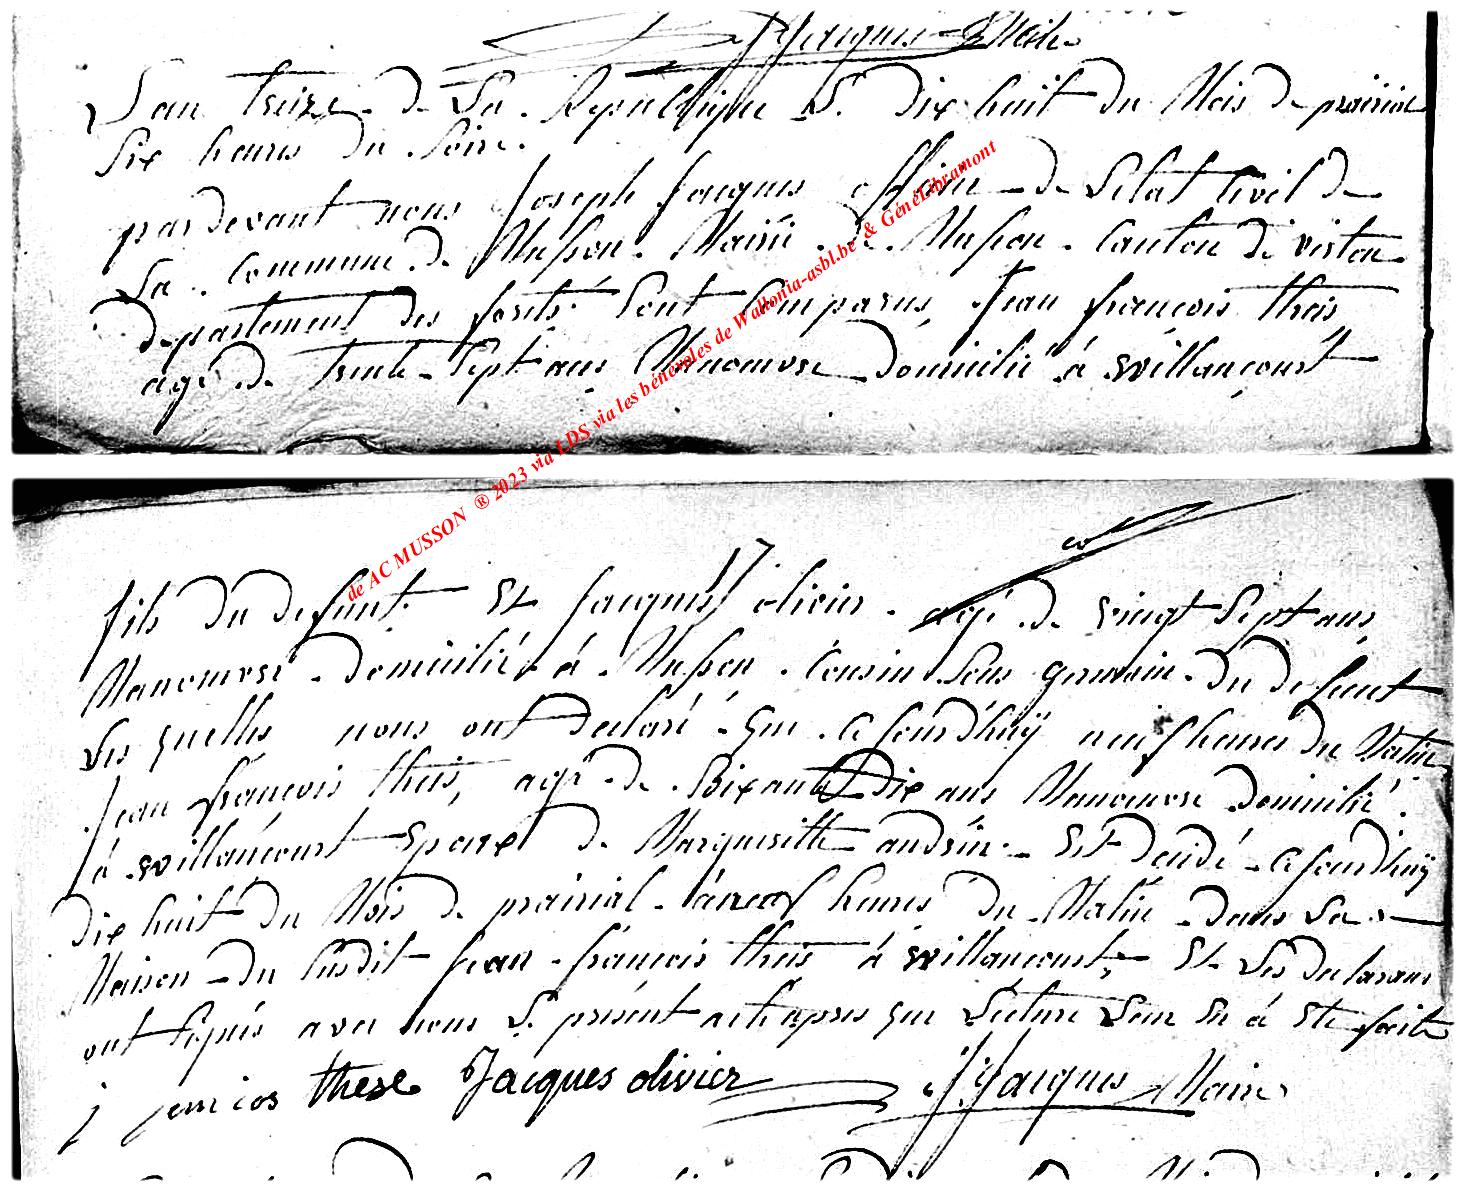 J Jacques Maire
L'an treize de La Republique Le dix huit du Mois de prairial
six heures du soire.
pardevant nous Joseph Jacques officier de L'Etat Civil de
La Commune de Musson Mairie de Musson Canton de virton
departement des forêts sont Comparus, Jean françois theis
agé de trente sept ans Manœuvre domicilié à willancourt
de AC MUSSON ® 2023 via LDS via les bénévoles de Wallonia-asbl.be & GénéLibramont
17
fils du defunt Et Jacques olivier agé de vingt sept ans
Manœuvre domicilié à Musson Cousin sous germain du defunt
Les quelles nous ont declaré que cejourd'huÿ neuf heures du Matin
Jean françois theis, agé de soixante Dix ans Manœuvre domicilié
à willancourt Epoux de Marguerithe andrin Est décidé cejourd'huÿ
dix huit du Mois de prairial à neuf heures du Matin dans La
Maison du susdit Jean françois theis à willancourt, Et Les declarans
ont signés avec nous Le présent acte apres que Lecture Leur En à Eté faite
j these Jacques olivier J Jacques Maire